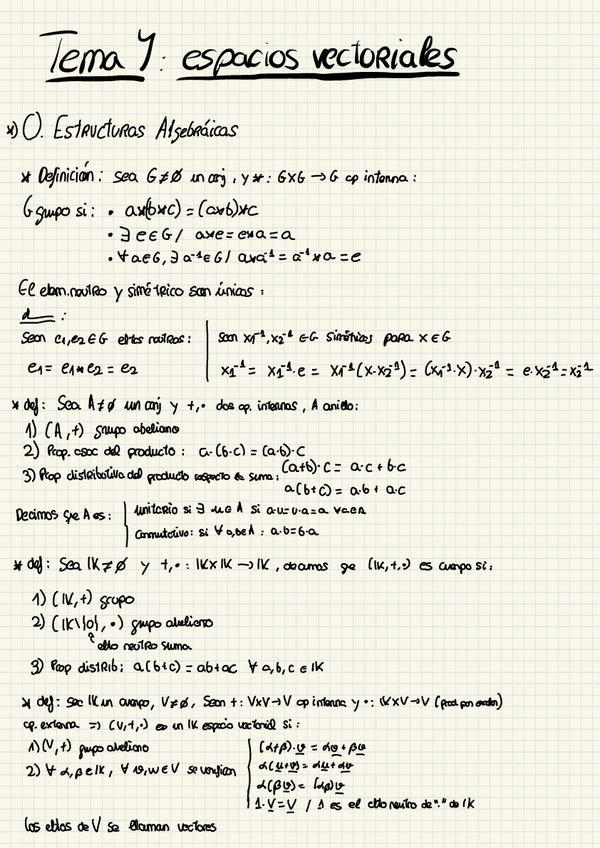 Tema 1: espacios vectoriales
*) 0. Estructuras Algebráicas
* Definición: sea G≠∅ un conj, y *: G×G → G op interna:
G grupo si: • a*(b*c) = (a*b)*c
• ∃ e∈G / a*e = e*a = a
• ∀a∈G, ∃ a⁻¹∈G / a*a⁻¹ = a⁻¹*a = e
El elem. neutro y simétrico son únicos:
d:
Sean e₁,e₂∈G eltos neutros: | Sean x₁⁻¹, x₂⁻¹ ∈ G simétricos para x∈G
e₁ = e₁*e₂ = e₂ | x₁⁻¹ = x₁⁻¹·e = x₁⁻¹(x·x₂⁻¹) = (x₁⁻¹·x)·x₂⁻¹ = e·x₂⁻¹ = x₂⁻¹
* def: Sea A≠∅ un conj y +,· dos op. internas, A anillo:
1) (A,+) grupo abeliano
2) Prop. asoc del producto: a·(b·c) = (a·b)·c
3) Prop distributiva del producto respecto la suma: (a+b)·c = a·c + b·c
a(b+c) = a·b + a·c
Decimos que A es: | unitario si ∃ u∈A si a·u=u·a=a ∀a∈A
Conmutativo: si ∀ a,b∈A : a·b=b·a
* def: Sea IK≠∅ y +,· : IK×IK → IK, decimos que (IK,+,·) es cuerpo si:
1) (IK,+) grupo
2) (IK\{0}, ·) grupo abeliano
elto neutro suma
3) Prop distrib: a(b+c) = ab+ac ∀ a,b,c ∈ IK
* def: Sea IK un cuerpo, V≠∅, Sean +: V×V→V op interna y ·: IK×V→V (prod. por escalar)
op. externa => (V,+,·) es un IK espacio vectorial si:
1) (V,+) grupo abeliano | (α+β)·v = αv+βv
2) ∀ α,β∈IK, ∀ v,w∈V se verifican | α(u+v) = αu+αv
α(βv) = (αβ)v
1·v=v / 1 es el elto neutro de "·" de IK
Los eltos de V se llaman vectores